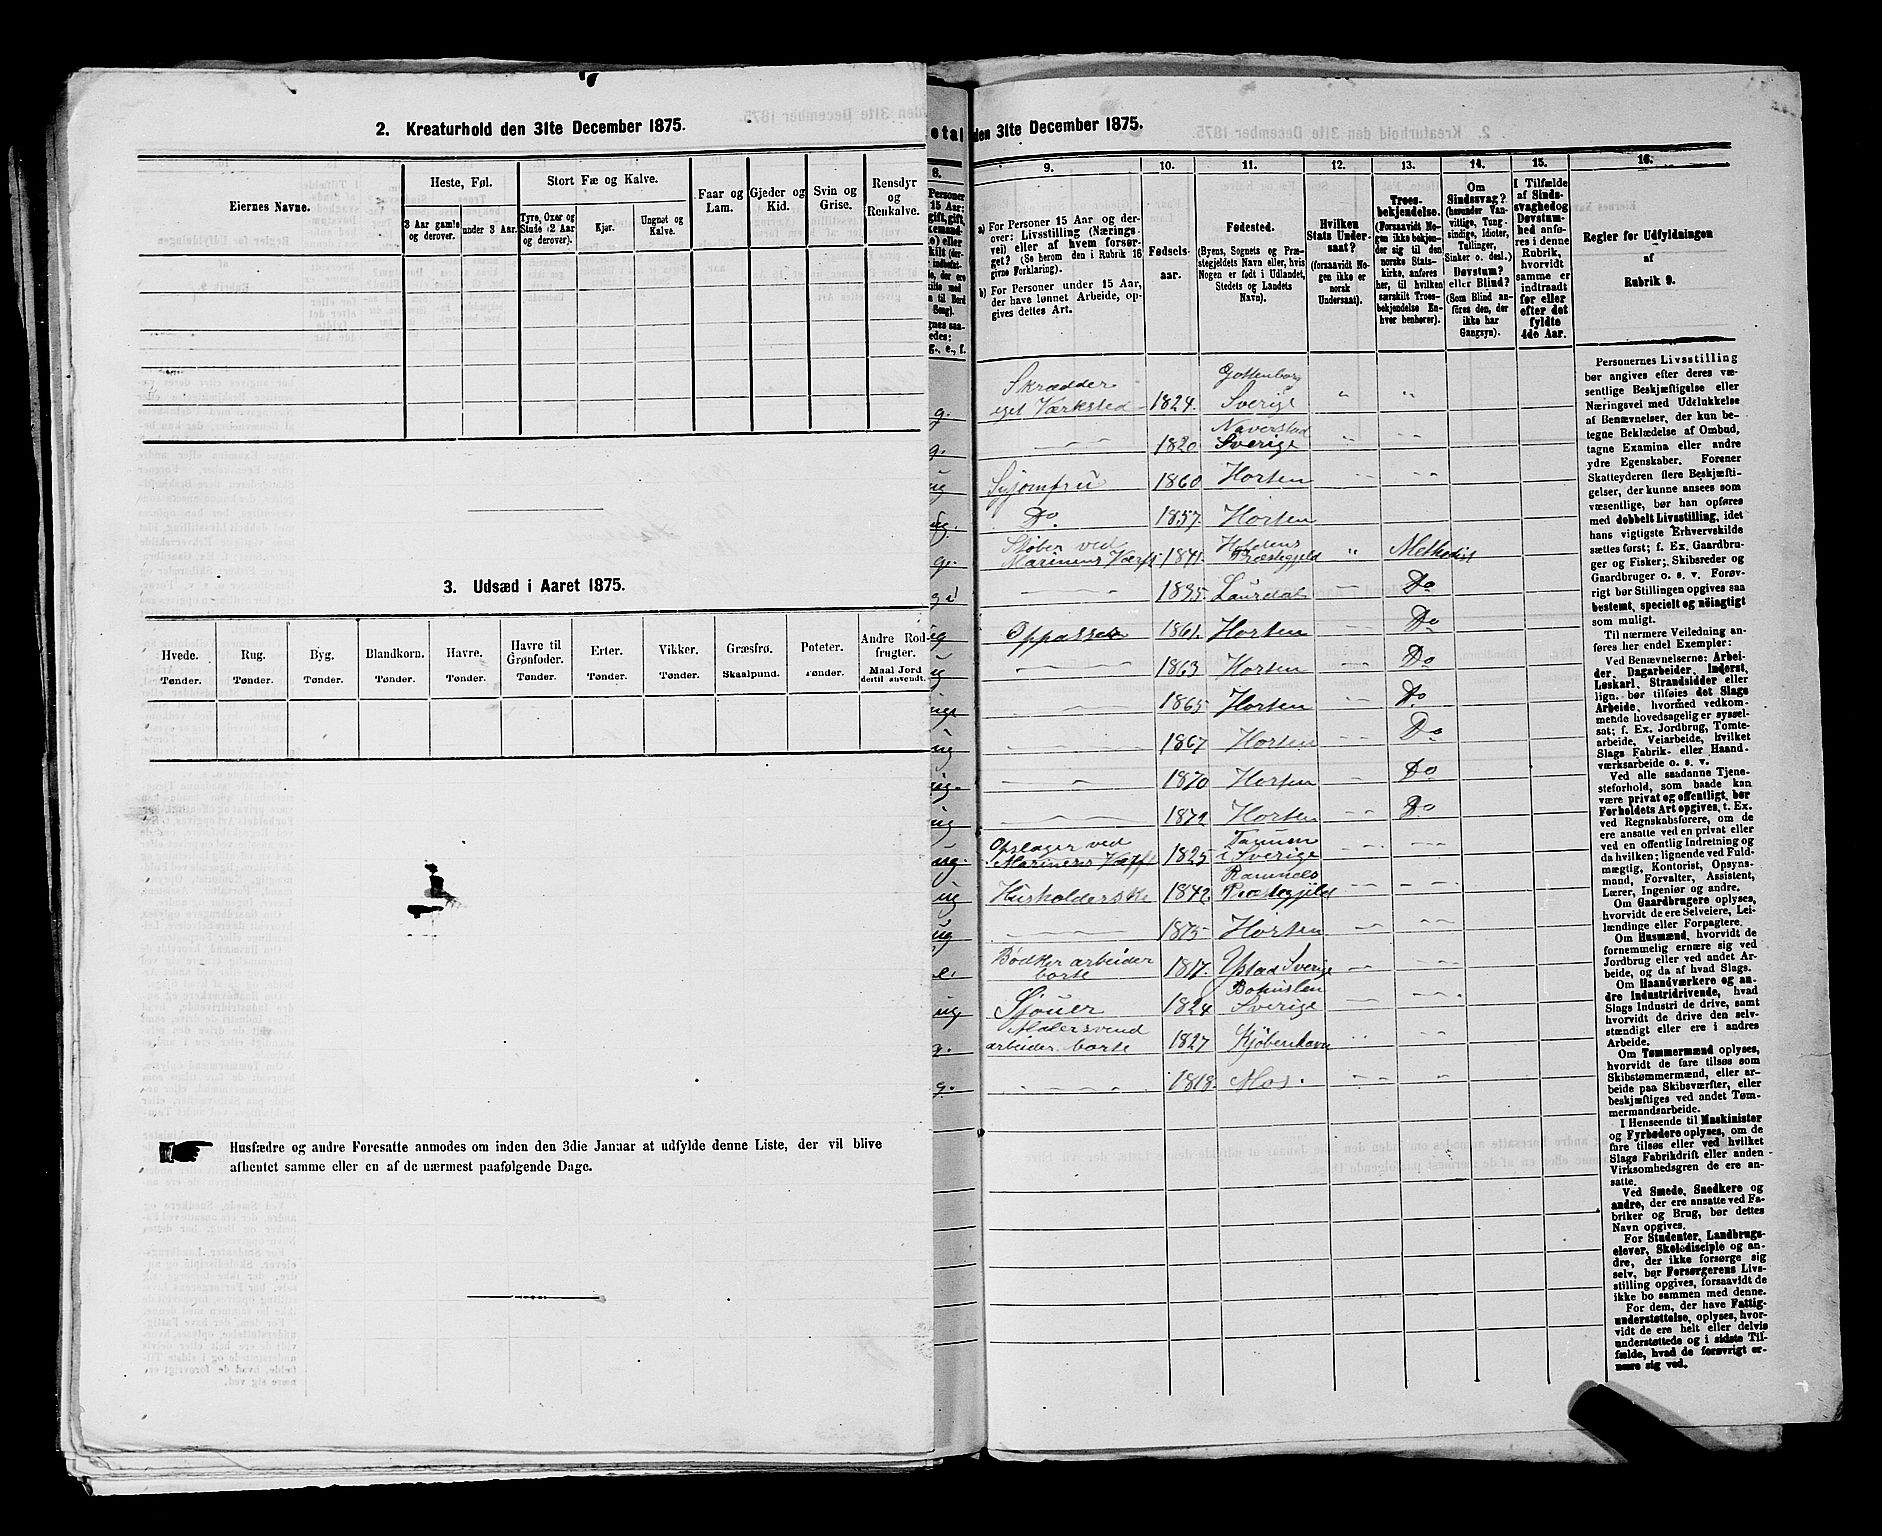 2. Kreaturhold den 31te December 1875.
Eiernes Navne.
Heste, Føl.
3 Aar gamle og derover.
under 3 Aar.
Stort Fæ og Kalve.
Tyre, Oxer og Stude (2 Aar og derover).
Kjør.
Ungnøt og Kalve.
Faar og Lam.
Gjeder og Kid.
Svin og Grise.
Rensdyr og Renkalve.
3. Udsæd i Aaret 1875.
Hvede. Tønder.
Rug. Tønder.
Byg. Tønder.
Blandkorn. Tønder.
Havre. Tønder.
Havre til Grønfoder. Tønder.
Erter. Tønder.
Vikker. Tønder.
Græsfrø. Skaalpund.
Poteter. Tønder.
Andre Rodfrugter. Maal Jord dertil anvendt.
Husfædre og andre Foresatte anmodes om inden den 3die Januar at udfylde denne Liste, der vil blive
afhentet samme eller en af de nærmest paafølgende Dage.
den 31te December 1875.
8.
9.
a) For Personer 15 Aar og derover: Livsstilling (Næringsvei) eller af hvem forsørget? (Se herom den i Rubrik 16 givne Forklaring).
b) For Personer under 15 Aar, der have lønnet Arbeide, opgives dettes Art.
10.
Fødselsaar.
11.
Fødested.
(Byens, Sognets og Præstegjeldets Navn eller, hvis Nogen er født i Udlandet, Stedets og Landets Navn).
12.
Hvilken Stats Undersaat?
(forsaavidt Nogen ikke er norsk Undersaat).
13.
Troesbekjendelse.
(Forsaavidt Nogen ikke bekjender sig til den norske Statskirke, anføres her, til hvilken særskilt Troesbekjendelse Enhver henhører).
14.
Om Sindssvag?
(herunder Vanvittige, Tungsindige, Idioter, Tullinger, Sinker o. desl.)
Døvstum? eller Blind?
(Som Blind anføres den, der ikke har Gangsyn).
15.
I Tilfælde af Sindssvaghed og Døvstumhed anføres i denne Rubrik, hvorvidt samme er indtraadt før eller efter det fyldte 4de Aar.
16.
Regler for Udfyldningen af Rubrik 9.
g. Skrædder eget Værksted 1824. Gottenborg Sverige " "
g. 1820 Naverstad Sverige
ug Syjomfru 1860 Horten
ug. Do 1857. Horten
g. Støber ved Marinens Værft 1841. Præstegjeld " Methodist
1835. Laurdal Do
ug Oppasser 1861. Horten Do
ug 1863 Horten Do
1865. Horten Do
ug 1867 Horten Do
ug. 1870 Horten Do
ug 1872 Horten Do
ug. Opslager ved Marinens Værft 1825 Tanum i Sverige
ug Husholderske 1842. Ramnæs Præstegjeld
ug 1875 Horten
e. Bødker arbeider borte 1817. Ystad Sverige
ug. Sjouer 1824 Bohuslen Sverige
g. Malersvend arbeider borte 1827 Kjøbenhavn
g. 1818. Mos.
Personernes Livsstilling
bør angives efter deres væsentlige
Beskjæftigelse eller
Næringsvei med Udelukkelse
af Benævnelser, der kun betegne
Beklædelse af Ombud,
tagne Examina eller andre
ydre Egenskaber. Forener
Skatteyderen flere Beskjæftigelser,
der kunne ansees som
væsentlige, bør han opføres
med dobbelt Livsstilling, idet
hans vigtigste Erhvervskilde
sættes først; f. Ex. Gaardbruger
og Fisker; Skibsreder og
Gaardbruger o. s. v. Forøvrigt
bør Stillingen opgives saa
bestemt, specielt og nøiagtigt
som muligt.
Til nærmere Veiledning anføres
her endel Exempler:
Ved Benævnelserne: Arbeider,
Dagarbeider, Inderst,
Løskarl, Strandsidder eller
lign. bør tilføies det Slags
Arbeide, hvormed vedkommende
hovedsagelig er sysselsat;
f. Ex. Jordbrug, Tomtearbeide,
Veiarbeide, hvilket
Slags Fabrik- eller Haandværksarbeide
o. s. v.
Ved alle saadanne Tjenesteforhold,
som baade kan
være privat og offentligt, bør
Forholdets Art opgives, t. Ex.
ved Regnskabsførere, om de
ere ansatte ved en privat eller
ved en offentlig Indretning og
da hvilken; lignende ved Fuldmægtig,
Kontorist, Opsynsmand,
Forvalter, Assistent,
Lærer, Ingeniør og andre.
Om Gaardbrugere oplyses,
hvorvidt de ere Selveiere, Leilændinge
eller Forpagtere.
Om Husmænd, hvorvidt de
fornemmelig ernære sig ved
Jordbrug eller ved andet Arbeide,
og da af hvad Slags.
Om Haandværkere og andre
Industridrivende, hvad
Slags Industri de drive, samt
hvorvidt de drive den selvstændigt
eller ere i andres
Arbeide.
Om Tømmermænd oplyses,
hvorvidt de fare tilsøs som
Skibstømmermænd, eller arbeide
paa Skibsværfter, eller
beskjæftiges ved andet Tømmermandsarbeide.
I Henseende til Maskinister
og Fyrbødere oplyses, om de
fare tilsøs eller ved hvilket
Slags Fabrikdrift eller anden
Virksomhedsgren de ere ansatte.
Ved Smede, Snedkere og
andre, der ere ansatte ved Fabriker
og Brug, bør dettes
Navn opgives.
For Studenter, Landbrugselever,
Skoledisciple og andre,
der ikke forsørge sig
selv, bør Forsørgerens Livsstilling
opgives, forsaavidt de
ikke bo sammen med denne.
For dem, der have Fattigunderstøttelse,
oplyses, hvorvidt
de ere helt eller delvis
understøttede og i sidste Tilfælde,
hvad de forøvrigt ernære
sig ved.